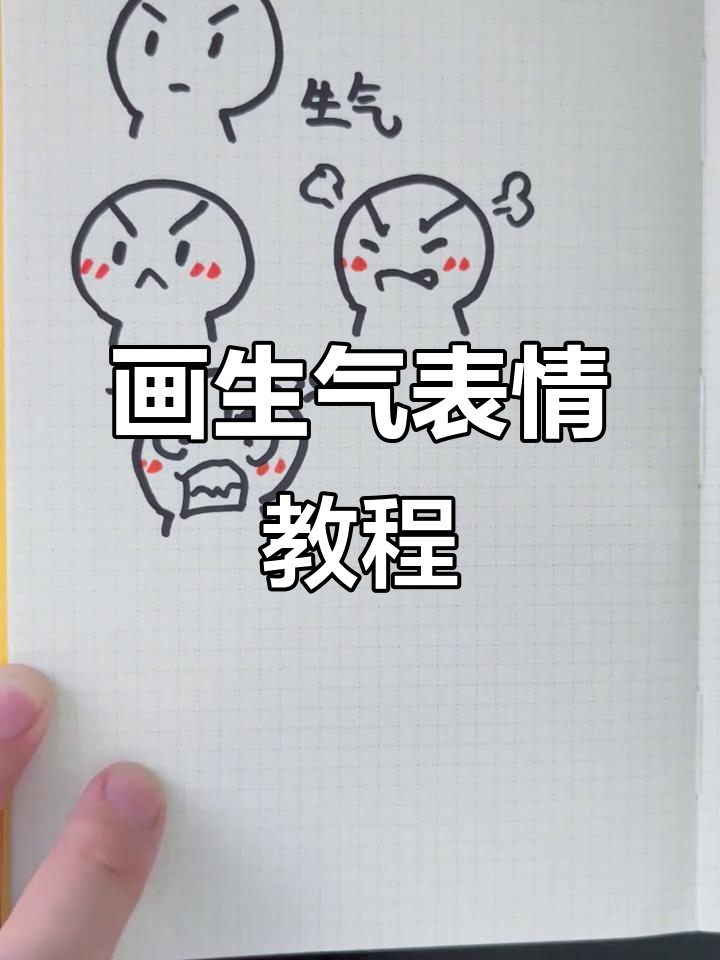 生气
画生气表情
教程